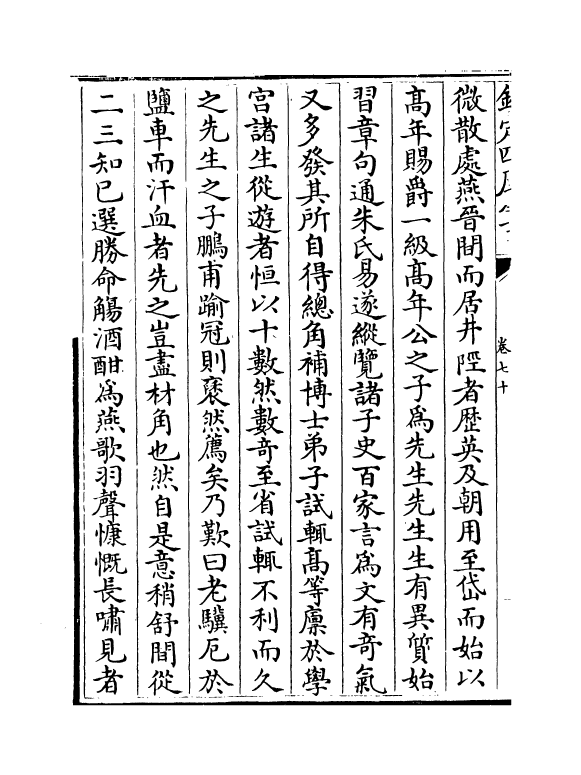 欽定四庫全書
卷七十
微散處燕晉間而居井陘者歴英及朝用至岱而始以
髙年賜爵一級髙年公之子爲先生先生生有異質始
習章句通朱氏易遂縱覽諸子史百家言爲文有竒氣
又多發其所自得總角補博士弟子試輒髙等廪於學
宫諸生從遊者恒以十數然數竒至省試輒不利而久
之先生之子鵬甫踰冠則裦然薦矣乃歎曰老驥厄於
鹽車而汗血者先之豈盡材角也然自是意稍舒間從
二三知已選勝命觴酒酣爲燕歌羽聲慷慨長嘯見者